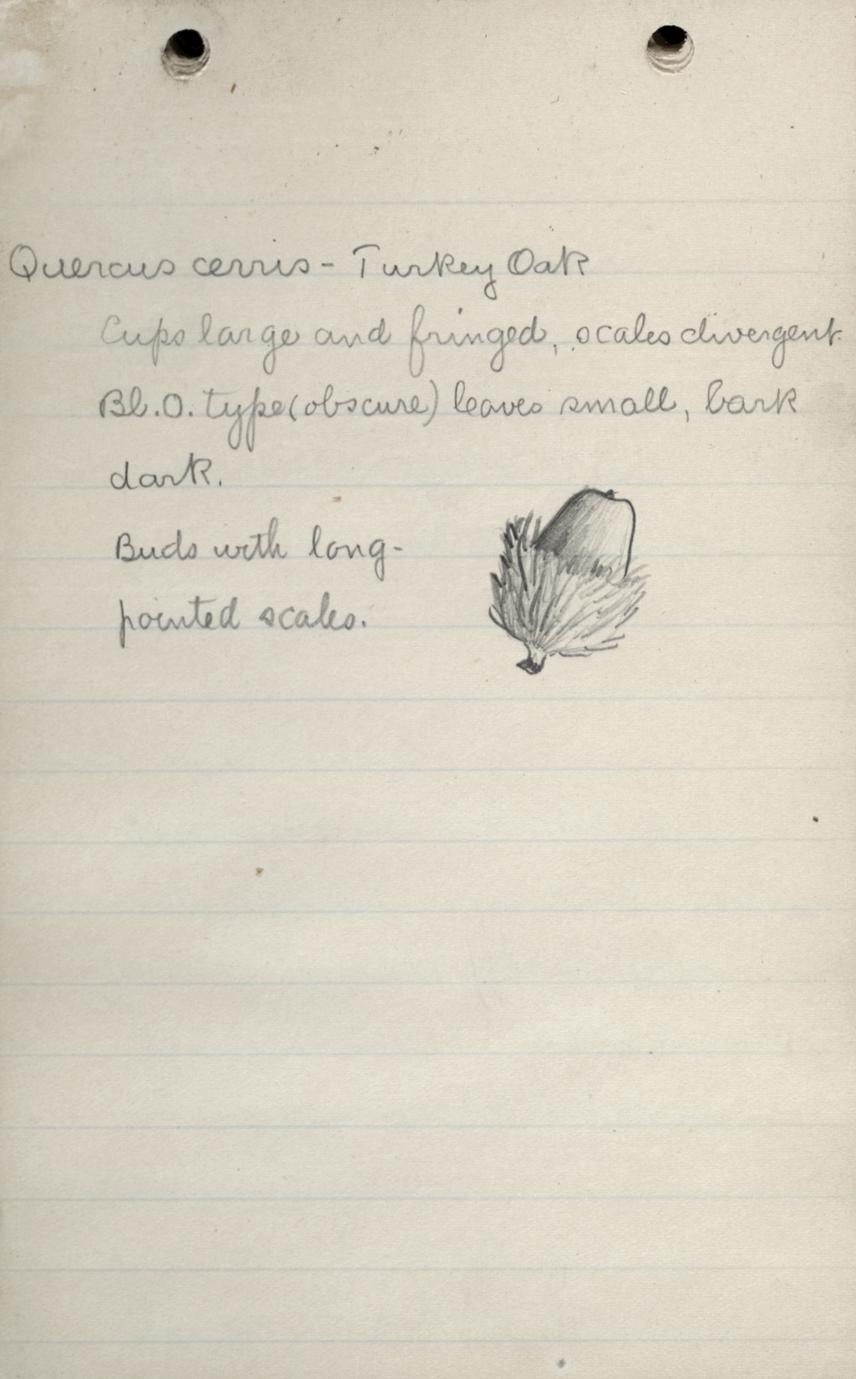 Quercus cerris - Turkey Oak
Cups large and fringed, scales divergent
Bl.O. type (obscure) leaves small, bark
dark.
Buds with long-
pointed scales.